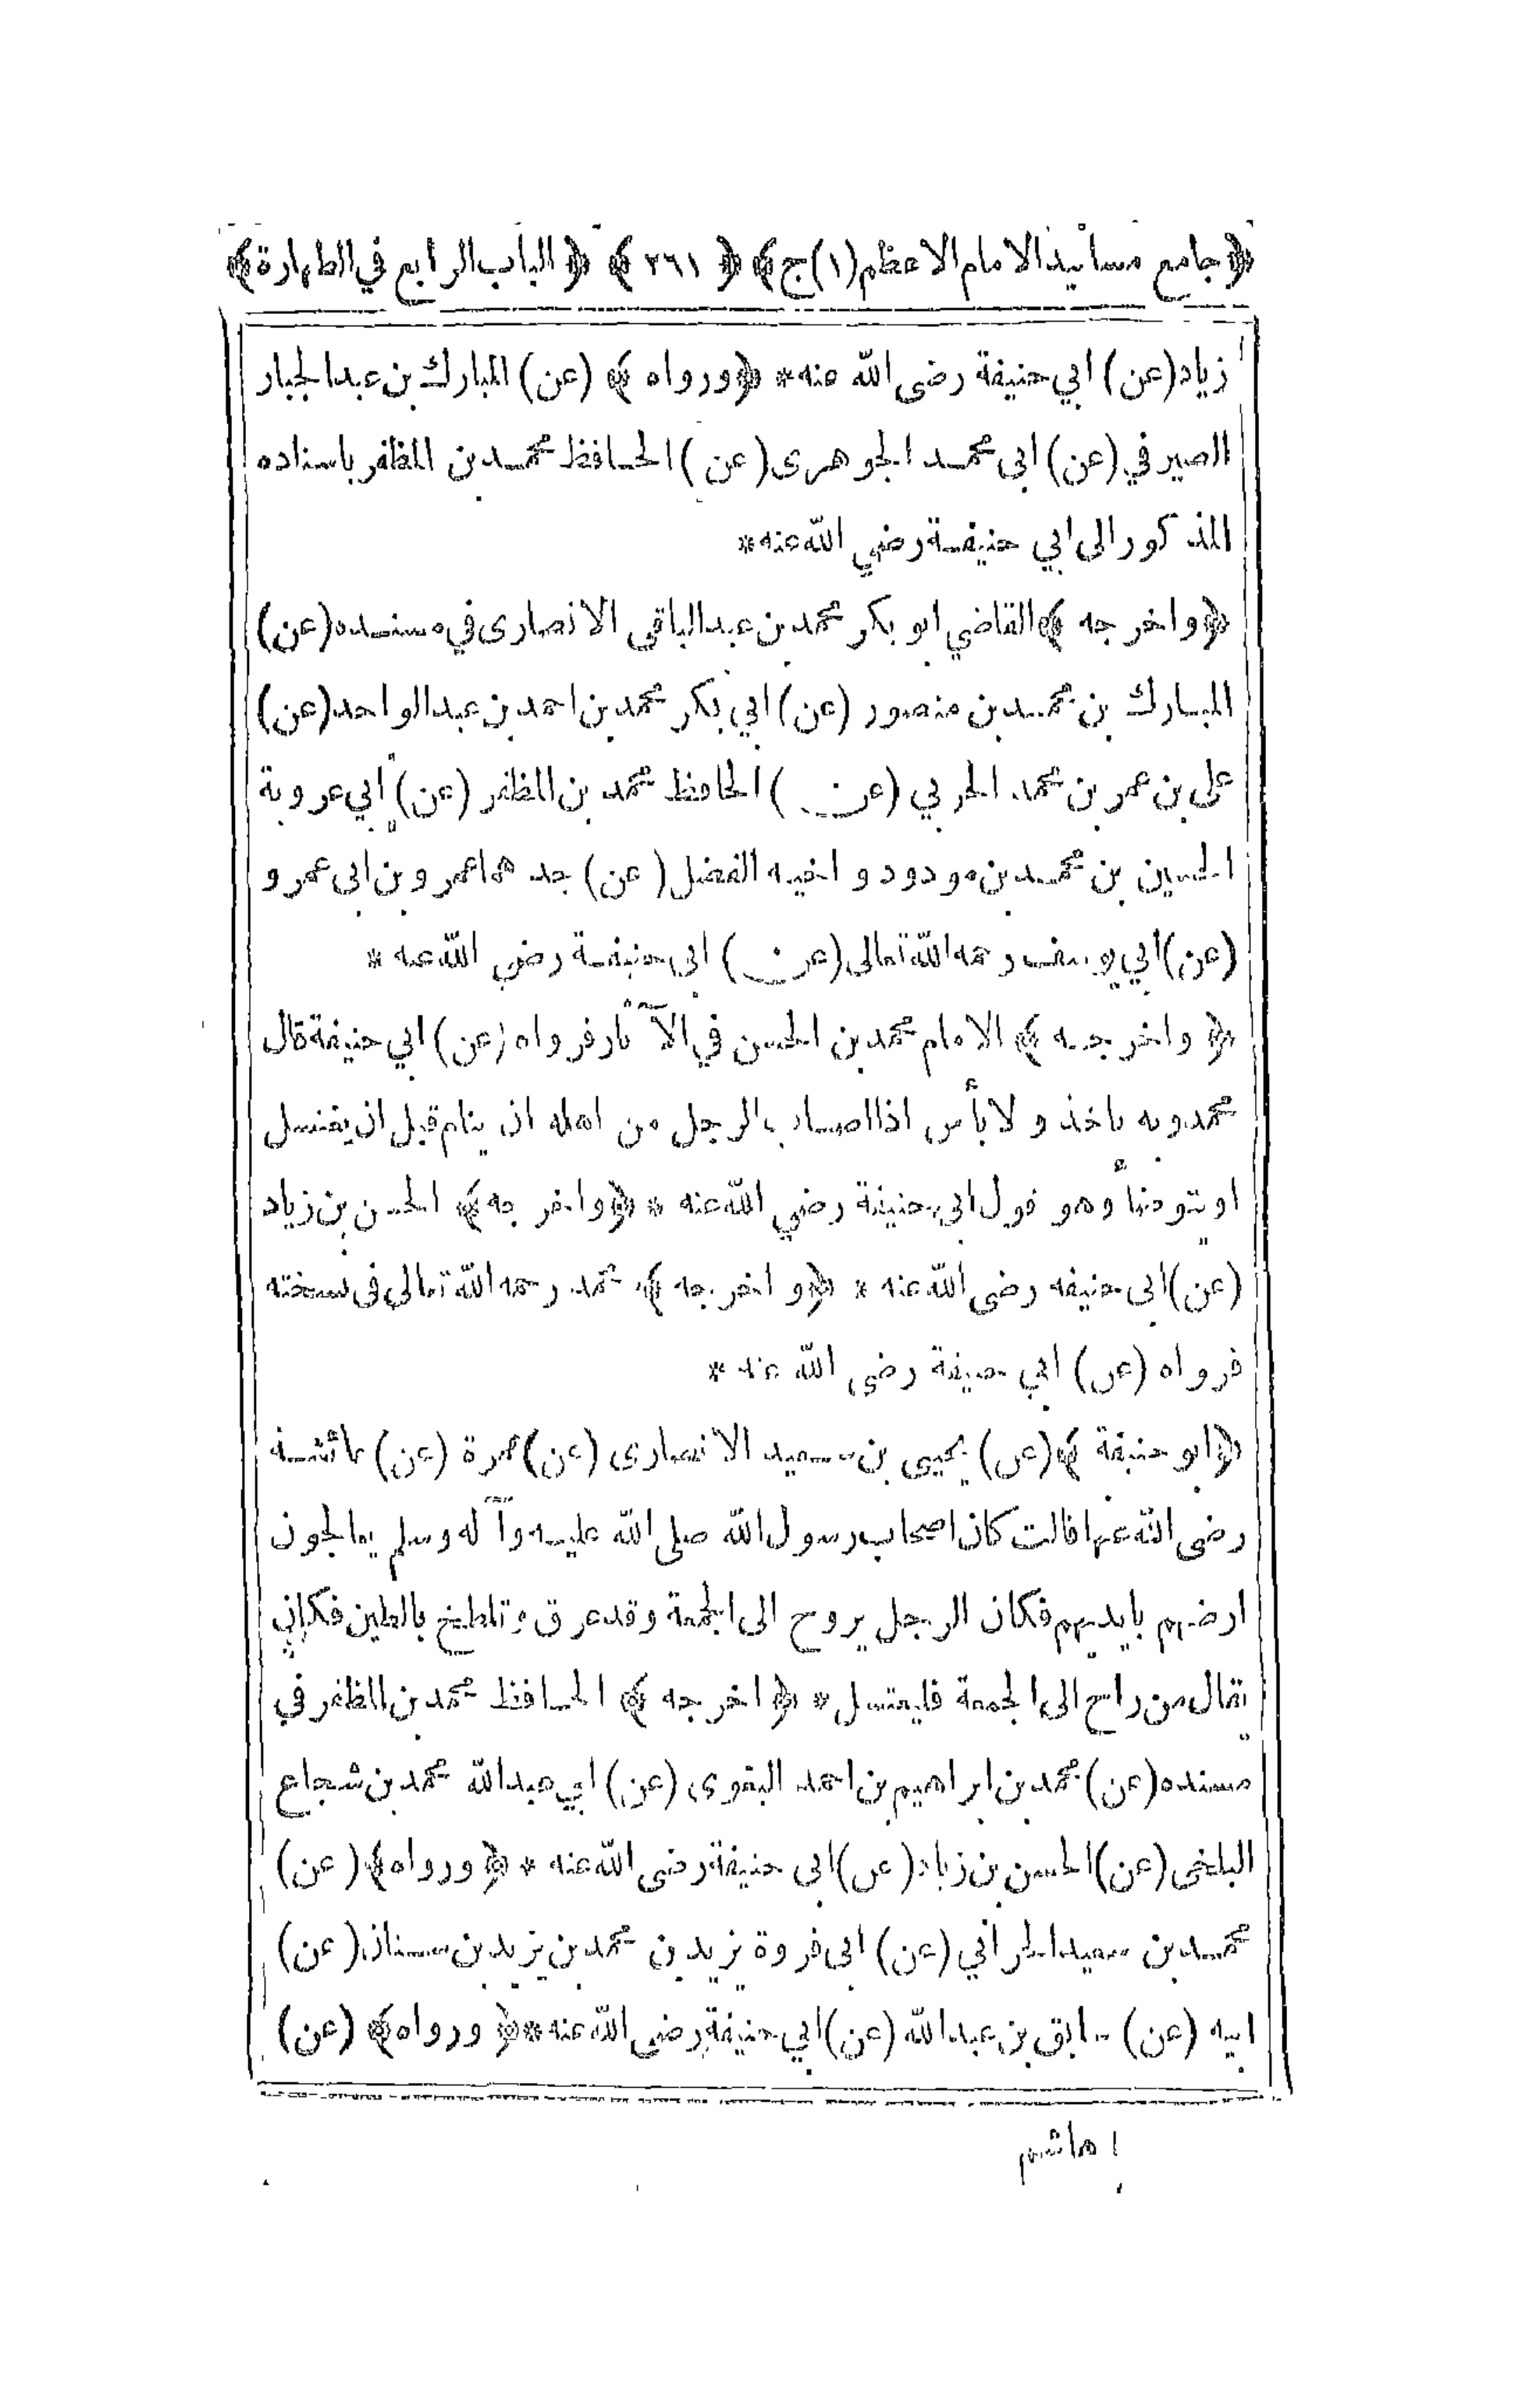 ﴿جامع مسانيد الامام الاعظم (١) ج﴾ ﴿ ٢٦١ ﴾ ﴿ الباب الرابع في الطهارة﴾
زياد (عن) ابي حنيفة رضى الله عنه * ﴿ورواه﴾ (عن) المبارك بن عبد الجبار
الصيرفي (عن) ابى محمد الجوهرى (عن) الحافظ محمد بن المظفر باسناده
المذكور الى ابي حنيفة رضي الله عنه *
﴿واخرجه﴾ القاضي ابو بكر محمد بن عبد الباقى الانصارى في مسنده (عن)
المبارك بن محمد بن منصور (عن) ابي بكر محمد بن احمد بن عبد الواحد (عن)
على بن عمر بن محمد الحربي (عن) الحافظ محمد بن المظفر (عن) ابي عروبة
الحسين بن محمد بن مودود و اخيه الفضل (عن) جدهما عمرو بن ابى عمرو
(عن) ابي يوسف رحمه الله تعالى (عن) ابى حنيفة رضي الله عنه *
﴿واخرجه﴾ الامام محمد بن الحسن في الآثار فرواه (عن) ابي حنيفة قال
محمد وبه ناخذ ولا بأس اذا اصاب الرجل من اهله ان ينام قبل ان يغتسل
او يتوضأ وهو قول ابي حنيفة رضي الله عنه * ﴿واخرجه﴾ الحسن بن زياد
(عن) ابى حنيفه رضى الله عنه * ﴿واخرجه﴾ محمد رحمه الله تعالى فى نسخته
فرواه (عن) ابي حنيفة رضى الله عنه *
﴿ابو حنيفة﴾ (عن) يحيى بن سعيد الانصارى (عن) عمرة (عن) عائشة
رضى الله عنها قالت كان اصحاب رسول الله صلى الله عليه وآله وسلم يعالجون
ارضهم بايديهم فكان الرجل يروح الى الجمعة وقد عرق وتلطخ بالطين فكان
يقال من راح الى الجمعة فليغتسل * ﴿اخرجه﴾ الحافظ محمد بن المظفر في
مسنده (عن) محمد بن ابراهيم بن احمد البغوى (عن) ابي عبد الله محمد بن شجاع
البلخى (عن) الحسن بن زياد (عن) ابى حنيفة رضى الله عنه * ﴿ورواه﴾ (عن)
محمد بن سعيد الحراني (عن) ابى فروة يزيد بن محمد بن يزيد بن سنان (عن)
ابيه (عن) سابق بن عبد الله (عن) ابي حنيفة رضى الله عنه * ﴿ورواه﴾ (عن)
هاشم